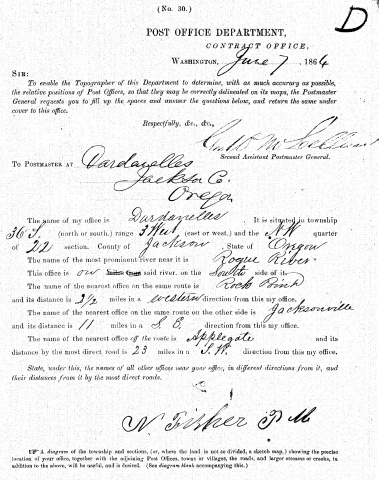 (No. 30.)
D
POST OFFICE DEPARTMENT,
CONTRACT OFFICE,
WASHINGTON, June 7, 1864
SIR:
To enable the Topographer of this Department to determine, with as much accuracy as possible,
the relative positions of Post Offices, so that they may be correctly delineated on its maps, the Postmaster
General requests you to fill up the spaces and answer the questions below, and return the same under
cover to this office.
Respectfully, &c., &c.,
Geo. W. McLellan
Second Assistant Postmaster General.
TO POSTMASTER AT Dardanelles
Jackson Co.
Oregon
The name of my office is Dardanelles It is situated in township
36 S. (north or south,) range 3 West (east or west,) and the NW quarter
of 22 section. County of Jackson, State of Oregon
The name of the most prominent river near it is Rogue River
This office is on said river, on the South side of it.
The name of the nearest office on the same route is Rock Point
and its distance is 3 1/2 miles in a western direction from this my office.
The name of the nearest office on the same route on the other side is Jacksonville
and its distance is 11 miles in a S. E. direction from this my office.
The name of the nearest office off the route is Applegate and its
distance by the most direct road is 23 miles in a S. W. direction from this my office.
State, under this, the names of all other offices near your office, in different directions from it, and
their distances from it by the most direct roads.
N. Fisher P. M
A diagram of the township and sections, (or, where the land is not so divided, a sketch map,) showing the precise
location of your office, together with the adjoining Post Offices, towns or villages, the roads, and larger streams or creeks, in
addition to the above, will be useful, and is desired. (See diagram accompanying this.)